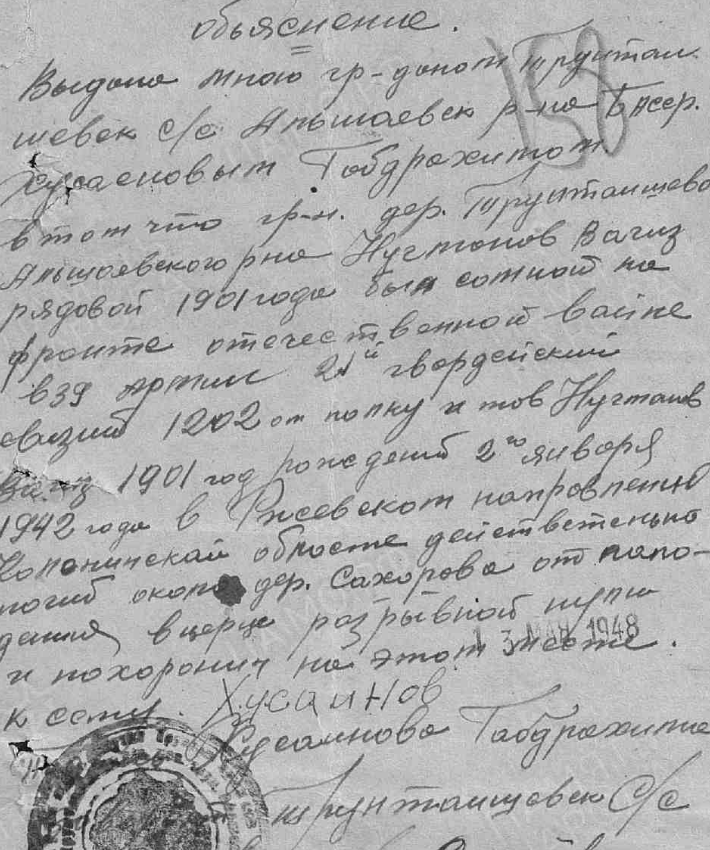 объяснение.
158
Выдана мною гр-даном Трунтаи
шевск с/с Альшаевск р-на Башсер.
Хусаеновым Габдрахимом
в том что гр-н. дер. Трунтаишево
Альшаевского р на Нугманов Вагиз
рядовой 1901 года был сомной на
фронте отечественной вайне
в 39 армии 21й гвардейский
дивизий 1202 от полку и тов Нугманов
Вагиз 1901 год рождений 2го января
1942 года в Ржевском направлений
Колонинской области действетельно
погиб около дер. Сахорова от попо-
дания в церце разрывной пули
и похоронил на этом месте.
13 МАЯ 1948
к сему. Хусаинов
Хусаинова Габдрахима
Трунтаишевск С/с